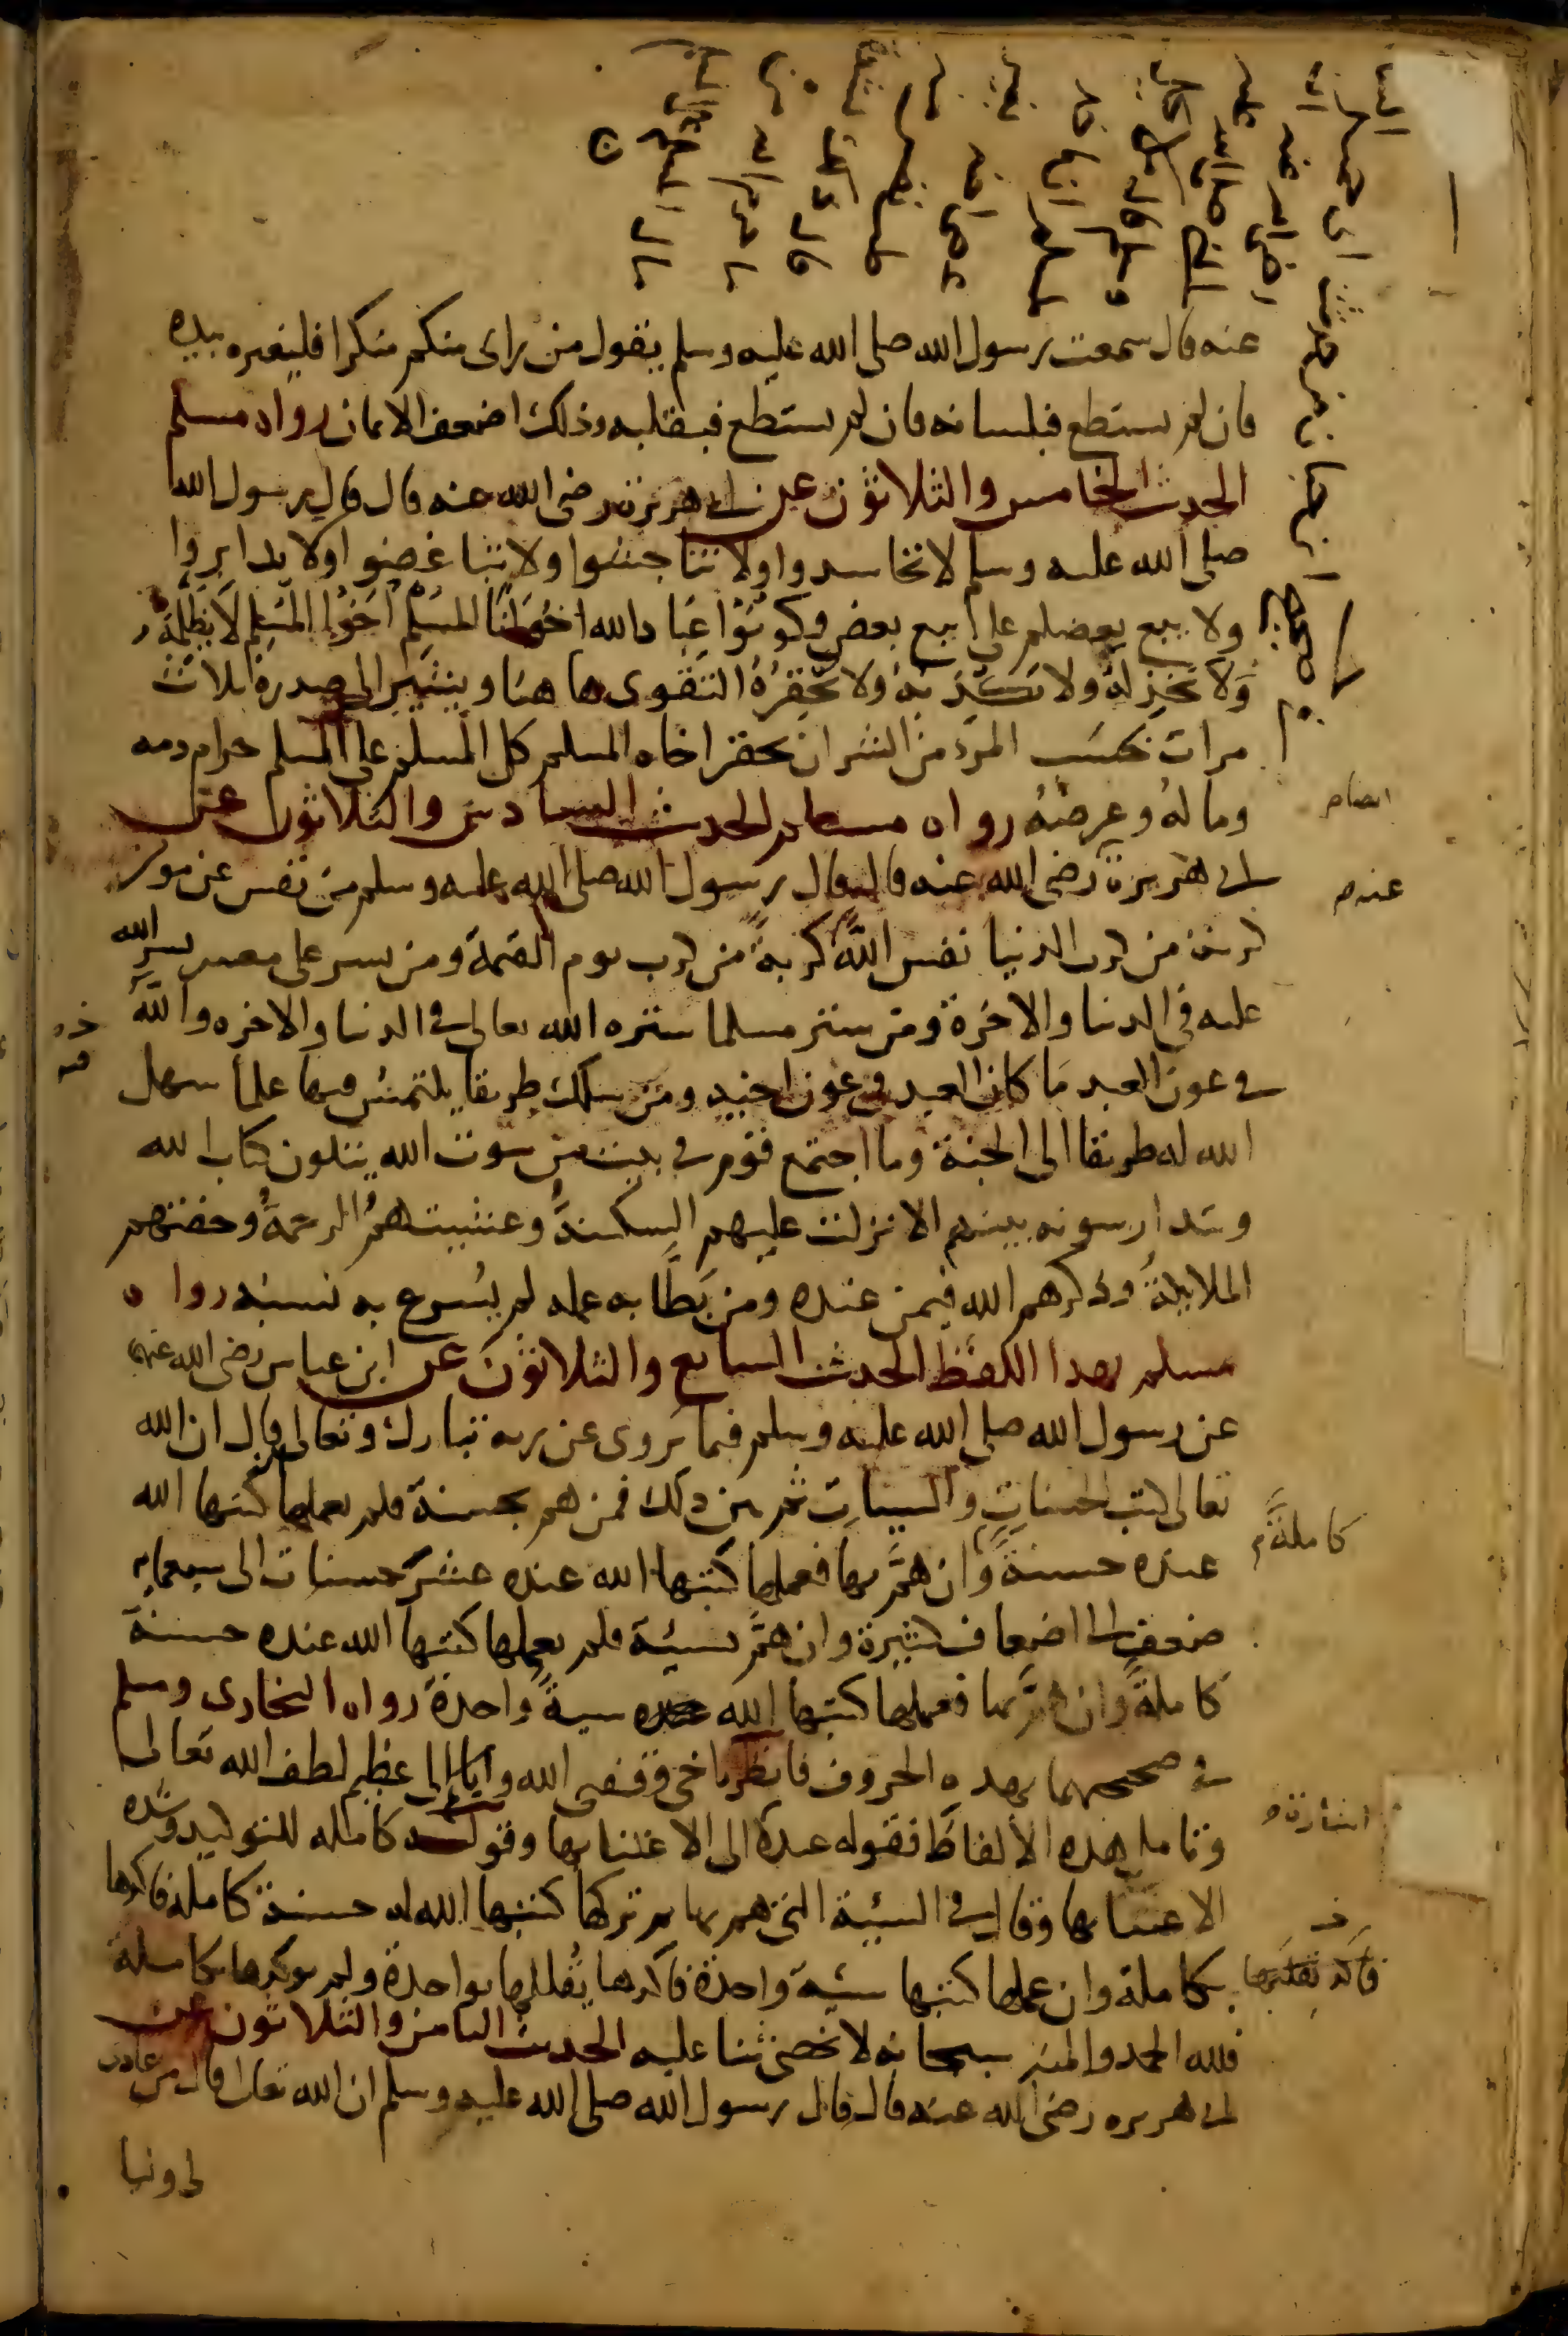 عنه قال سمعت رسول الله صلى الله عليه وسلم يقول من راى منكم منكرا فليغيره بيده
فان لم يستطع فبلسانه فان لم يستطع فبقلبه وذلك اضعف الايمان رواه مسلم
الحديث الخامس والثلاثون عن ابي هريرة رضى الله عنه قال قال رسول الله
صلى الله عليه وسلم لا تحاسدوا ولا تناجشوا ولا تباغضوا ولا تدابروا
ولا يبع بعضكم على بيع بعض وكونوا عباد الله اخوانا المسلم اخوا المسلم لا يظلمه
ولا يخذله ولا يكذبه ولا يحقره التقوى ها هنا ويشير الى صدره ثلاث
مرات بحسب المرء من الشر ان يحقر اخاه المسلم كل المسلم على المسلم حرام دمه
وماله وعرضه رواه مسلم الحديث السادس والثلاثون عن
ابي هريرة رضى الله عنه قال قال رسول الله صلى الله عليه وسلم من نفس عن مومن
كربة من كرب الدنيا نفس الله كربة من كرب يوم القيمة ومن يسر على معسر يسر الله
عليه في الدنيا والاخرة ومن ستر مسلما ستره الله تعالى في الدنيا والاخره والله
في عون العبد ما كان العبد في عون اخيه ومن سلك طريقا يلتمس فيها علما سهل
الله له طريقا الى الجنة وما اجتمع قوم في بيت من بيوت الله يتلون كتاب الله
ويتدارسونه بينهم الا نزلت عليهم السكينة وغشيتهم الرحمة وحفتهم
الملايكة وذكرهم الله فيمن عنده ومن بطا به عمله لم يسرع به نسبه رواه
مسلم بهدا اللفظ الحديث السابع والثلاثون عن ابن عباس رضى الله عنهما
عن رسول الله صلى الله عليه وسلم فيما يروى عن ربه تبارك وتعالى قال ان الله
تعالى كتب الحسنات والسيات ثم بين ذلك فمن هم بحسنة فلم يعملها كتبها الله
عنده حسنة وان هم بها فعملها كتبها الله عنده عشر حسنات الى سبعمايه
ضعف الى اضعاف كثيرة وان هم بسيئة فلم يعملها كتبها الله عنده حسنة
كاملة وان هم بها فعملها كتبها الله سية واحدة رواه البخارى ومسلم
في صحيحهما بهده الحروف فانظر يا خي وفقني الله واياك الى عظيم لطف الله تعالى
وتامل هده الالفاظ فقوله عنده الى الاعتنا بها وقوله كامله للتوكيد وشده
الاعتنا بها وقال في السيئة التي هم بها ثم تركها كتبها الله له حسنة كاملة فاكدها
بكاملة وان عملها كتبها سيئة واحدة فاكدها يقللها بواحدة ولم يوكدها بكاملة
فلله الحمد والمنه سبحانه لا نحصى ثنا عليه الحديث الثامن والثلاثون عن
ابي هريره رضى الله عنه قال قال رسول الله صلى الله عليه وسلم ان الله تعالى قال من عادى
لى وليا
عنده
كاملة
اشارة
فاكد تقليلها